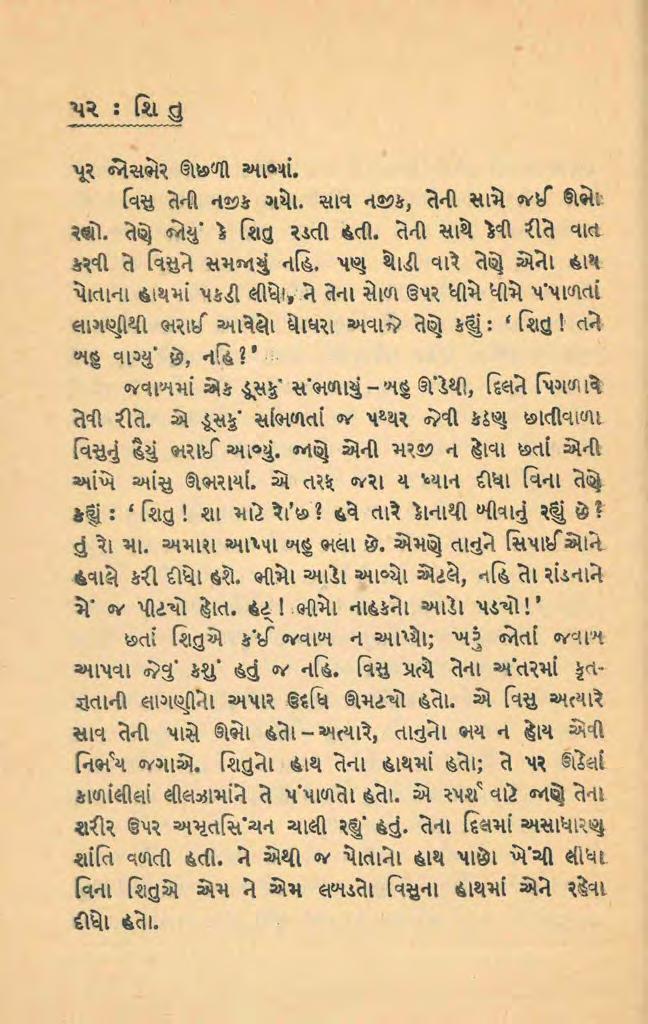 ૫૨ : શિ તુ
પૂર જોસભેર ઊછળી આવ્યાં.
વિસુ તેની નજીક ગયો. સાવ નજીક, તેની સામે જઈ ઊભો
રહ્યો. તેણે જોયું કે શિતુ રડતી હતી. તેની સાથે કેવી રીતે વાત
કરવી તે વિસુને સમજાયું નહિ. પણ થોડી વારે તેણે એનો હાથ
પોતાના હાથમાં પકડી લીધો, ને તેના સોળ ઉપર ધીમે ધીમે પંપાળતાં
લાગણીથી ભરાઈ આવેલો ઘોઘરા અવાજે તેણે કહ્યું : ‘ શિતુ ! તને
બહુ વાગ્યું છે, નહિ ? ’
જવાબમાં એક ડૂસકું સંભળાયું – બહુ ઊંડેથી, દિલને પિગળાવે
તેવી રીતે. એ ડૂસકું સાંભળતાં જ પથ્થર જેવી કઠણ છાતીવાળા
વિસુનું હૈયું ભરાઈ આવ્યું. જાણે એની મરજી ન હોવા છતાં એની
આંખે આંસુ ઊભરાયાં. એ તરફ જરા ય ધ્યાન દીધા વિના તેણે
કહ્યું : ‘ શિતુ ! શા માટે રો'છ ? હવે તારે કોનાથી બીવાનું રહ્યું છે ?
તું રો મા. અમારા આપ્પા બહુ ભલા છે. એમણે તાનુને સિપાઈઓને
હવાલે કરી દીધો હશે. ભીમો આડો આવ્યો એટલે, નહિ તો રાંડનાને
મેં જ પીટ્યો હોત. હટ્ ! ભીમો નાહકનો આડો પડ્યો ! ’
છતાં શિતુએ કંઈ જવાબ ન આપ્યો; ખરું જોતાં જવાબ
આપવા જેવું કશું હતું જ નહિ. વિસુ પ્રત્યે તેના અંતરમાં કૃત-
જ્ઞતાની લાગણીનો અપાર ઉદધિ ઊમટ્યો હતો. એ વિસુ અત્યારે
સાવ તેની પાસે ઊભો હતો – અત્યારે, તાનુનો ભય ન હોય એવી
નિર્ભય જગાએ. શિતુનો હાથ તેના હાથમાં હતો; તે પર ઊઠેલાં
કાળાંલીલાં લીલઝામાંને તે પંપાળતો હતો. એ સ્પર્શ વાટે જાણે તેના
શરીર ઉપર અમૃતસિંચન ચાલી રહ્યું હતું. તેના દિલમાં અસાધારણ
શાંતિ વળતી હતી. ને એથી જ પોતાનો હાથ પાછો ખેંચી લીધા
વિના શિતુએ એમ ને એમ લબડતો વિસુના હાથમાં એને રહેવા
દીધો હતો.